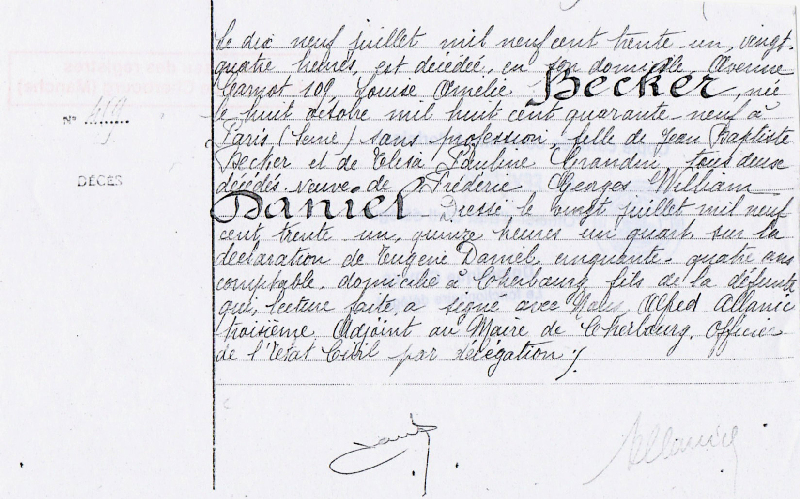 Le dix neuf juillet mil neuf cent trente un, vingt-
quatre heures, est décédée, en son domicile Avenue
Carnot 109, Louise Amelie Becker, née
le huit octobre mil huit cent quarante-neuf à
Paris (Seine) sans profession, fille de Jean Baptiste
Becker et de Pauline tous deux
décédés veuve de Fréderic Georges William
Daniel Dressé le vingt juillet mil neuf
cent trente un, quinze heures un quart sur la
déclaration de Eugène Daniel cinquante-quatre ans
comptable, domicilié à Cherbourg fils de la défunte
qui, lecture faite a signé avec Nous, Alfred Allanic
troisième Adjoint au Maire de Cherbourg, Officier
de l'Etat Civil par délégation ./.
N° 419
DÉCÈS
Allanic